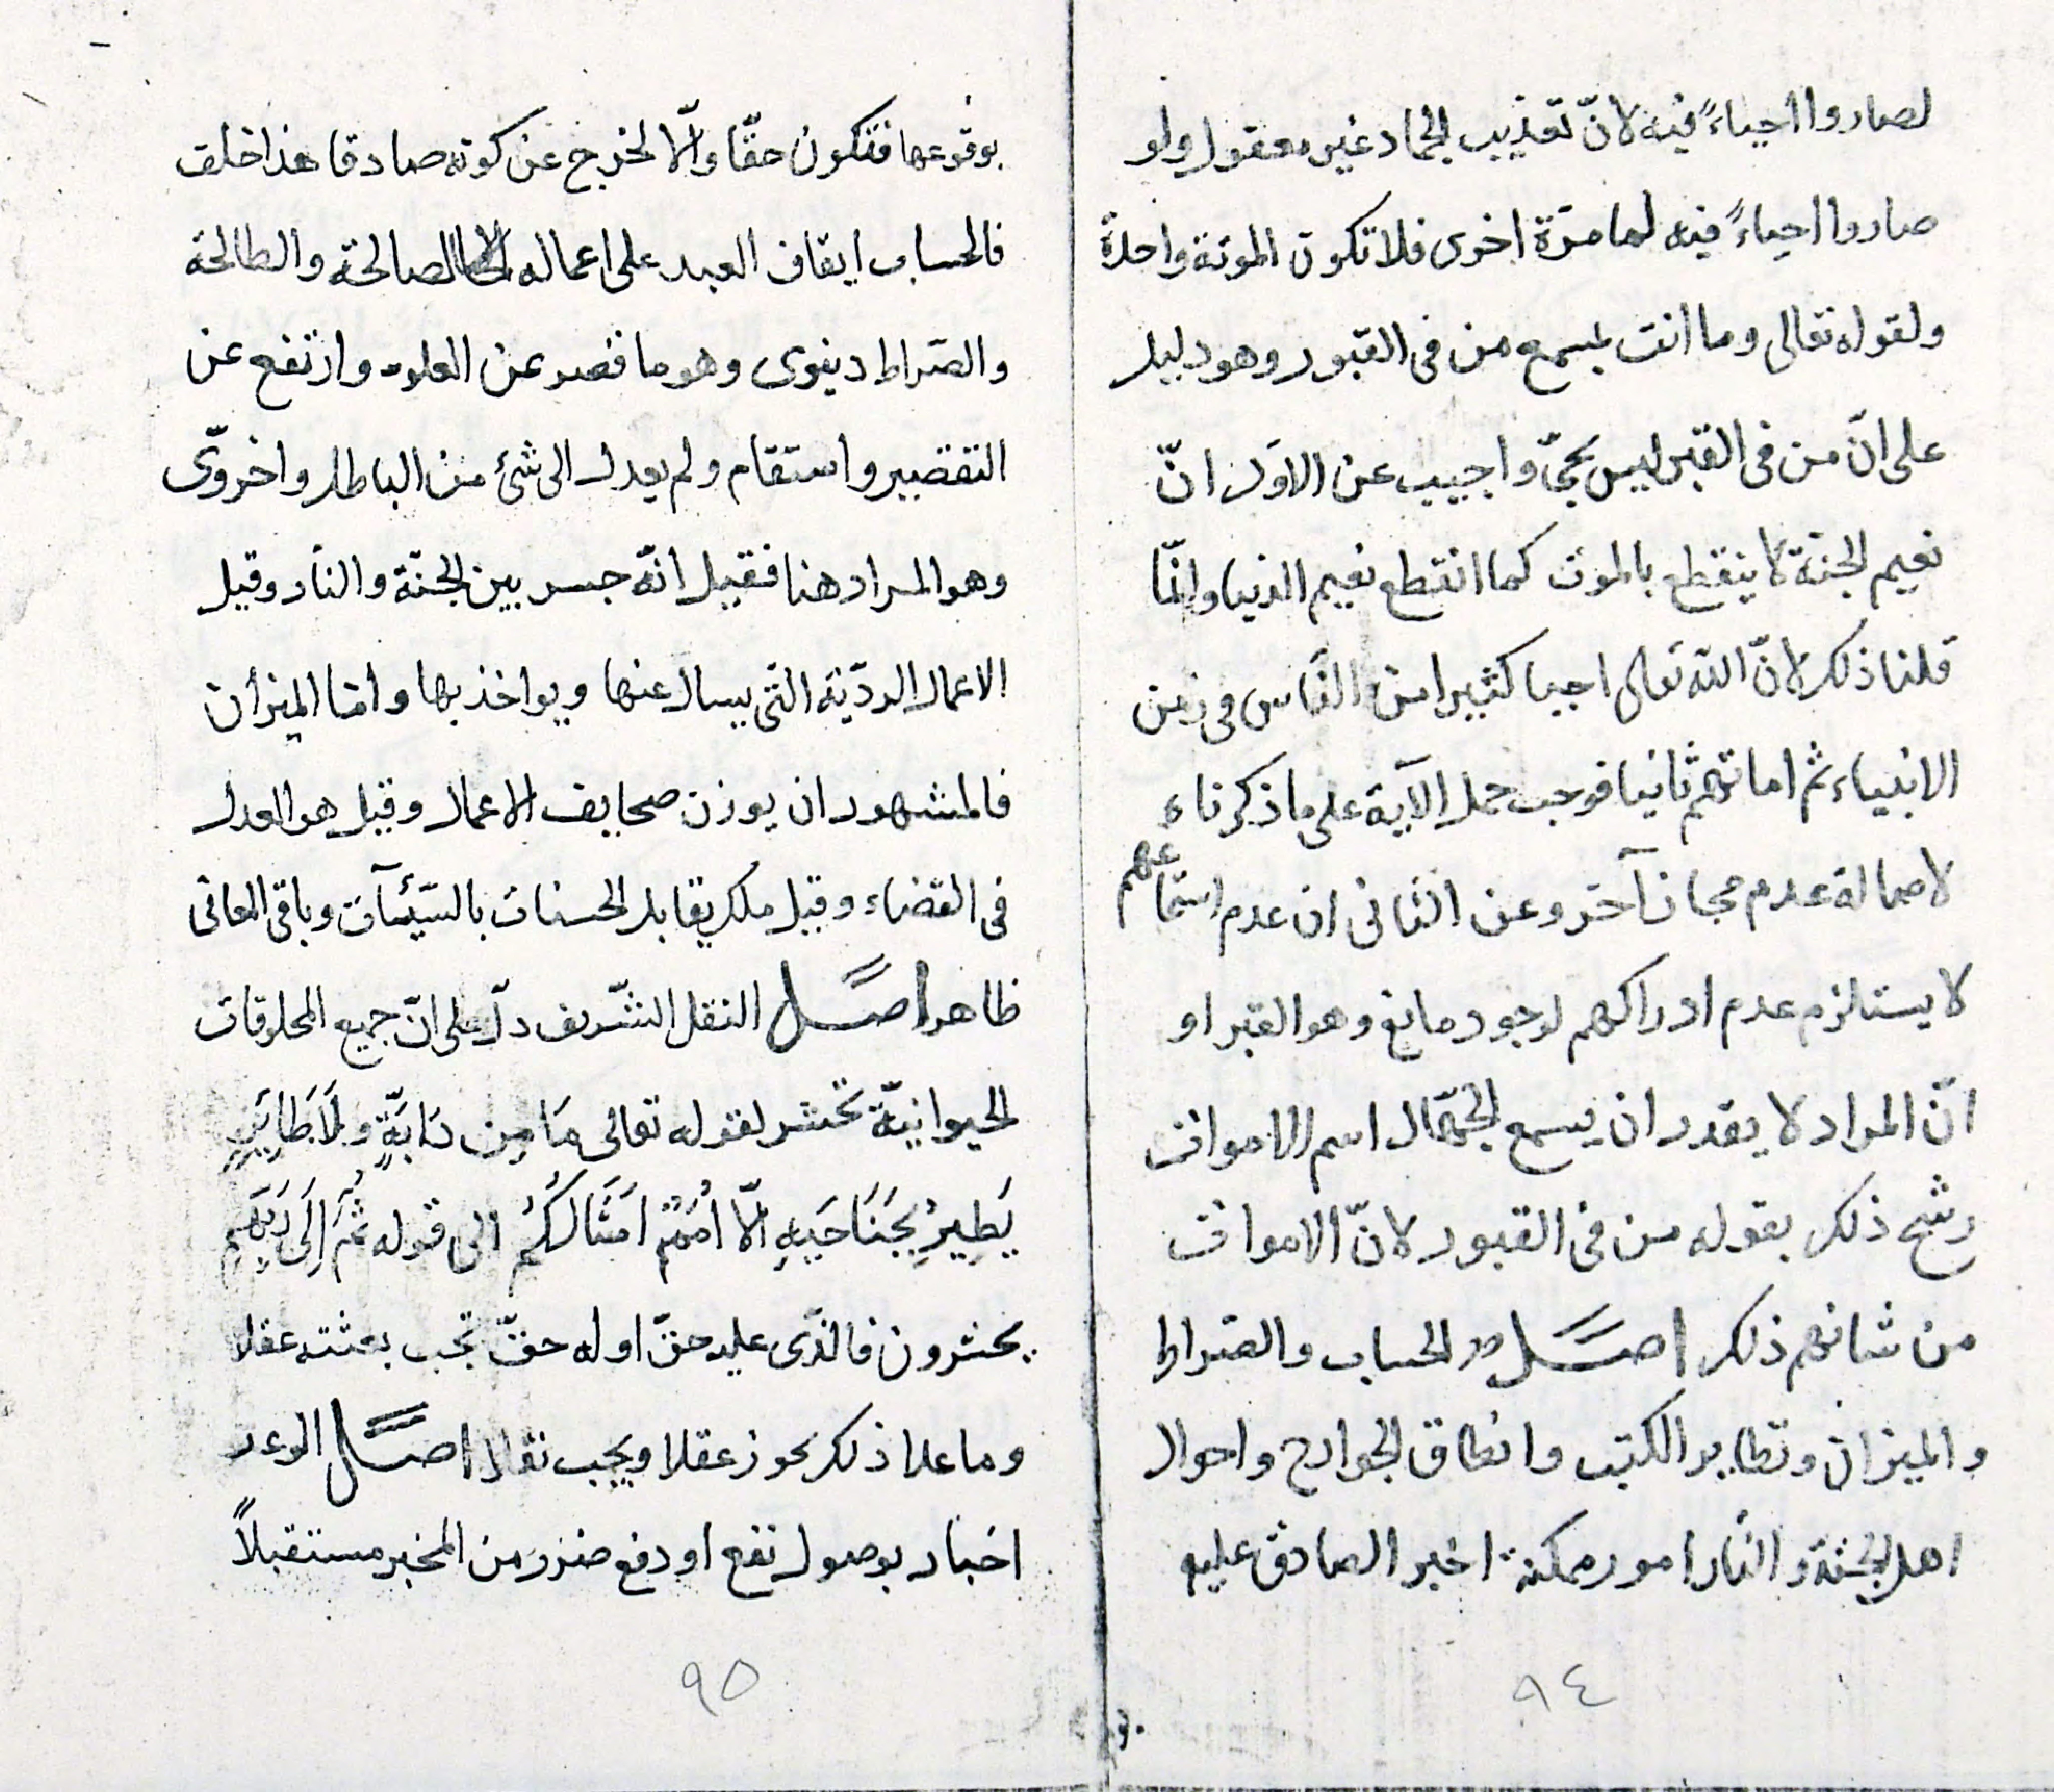 لصاروا احياءً فيه لانّ تعذيب الجماد غير معقول ولو
صاروا احياءً فيه لما مرّة اخرى فلا تكون الموتة واحدةً
ولقوله تعالى وما انت بمسمع من فى القبور وهو دليل
على انّ من فى القبر ليس بحىّ واجيب عن الاوّل انّ
نعيم الجنّة لا ينقطع بالموت كما انقطع نعيم الدنيا وانّما
قلنا ذلك لانّ الله تعالى احيا كثيرا من النّاس فى زمن
الانبياء ثم اماتهم ثانيا فوجب حمل الآية على ما ذكرناه
لاصالة عدم مجاز آخر وعن الثانى ان عدم استماعهم
لا يستلزم عدم ادراكهم لوجود مانع وهو القبر او
انّ المراد لا يقدر ان يسمع الجهّال اسم الاموات
رشح ذلك بقوله من فى القبور لانّ الاموات
من شانهم ذلك اصل الحساب والصّراط
والميزان وتطاير الكتب وانطاق الجوارح واحوال
اهل الجنّة والنّار امور ممكنة اخبر الصادق عليه
٩٤
بوقوعها فتكون حقّا والّا لخرج عن كونه صادقا هذا خلف
فالحساب ايقاف العبد على اعماله الصالحة والطالحة
والصّراط دينوى وهو ما قصر عن العلو وارتفع عن
التقصير واستقام ولم يعدل الى شئ من الباطل واخروىّ
وهو المراد هنا فقيل انّه جسر بين الجنّة والنّار وقيل
الاعمال الرديّة التّى يسال عنها ويواخذ بها وامّا الميزان
فالمشهور ان يوزن صحايف الاعمال وقيل هو العدل
فى القضاء وقيل ملك يقابل الحسنات بالسّيّئآت وباقى المعانى
ظاهر اصل النقل الشّريف دلّ على انّ جميع المخلوقات
الحيوانيّة تحشر لقوله تعالى مَا مِن دَابَّةٍ وَلَا طَايَرٍ
يَطِيرُ بِجَنَاحَيهِ الّا اُمَمٌ اَمثَالَكُم الى قوله ثُمَّ اِلَى رَبِّهِم
يحشرون فالذّى عليه حقّ اوله حقّ تجب بعثته عقلا
وما عدا ذلك يجوز عقلا ويجب نقلا اصل الوعد
اخبار بوصول نفع او دفع ضرر من المخبر مستقبلاً
٩٥